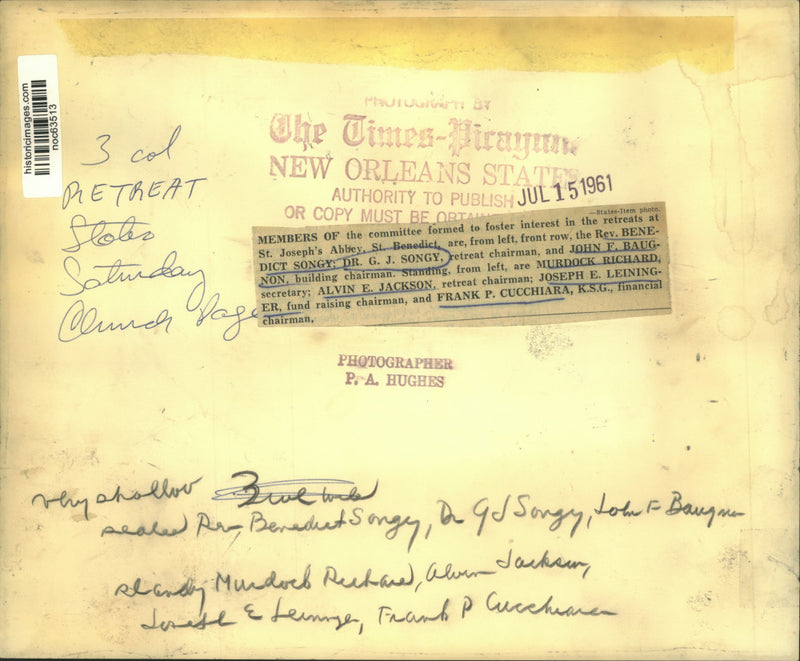 historicimages.com
noc63513
3 col
RETREAT
States
Saturday
Church Page
PHOTOGRAPH BY
The Times-Picayune
NEW ORLEANS STATES
AUTHORITY TO PUBLISH
OR COPY MUST BE OBTAIN
JUL 15 1961
—States-Item photo.
MEMBERS OF the committee formed to foster interest in the retreats at
St. Joseph's Abbey, St. Benedict, are, from left, front row, the Rev. BENE-
DICT SONGY; DR. G. J. SONGY, retreat chairman, and JOHN F. BAUG-
NON, building chairman. Standing, from left, are MURDOCK RICHARD,
secretary; ALVIN E. JACKSON, retreat chairman; JOSEPH E. LEINING-
ER, fund raising chairman, and FRANK P. CUCCHIARA, K.S.G., financial
chairman.
PHOTOGRAPHER
P. A. HUGHES
very shallow 3 col
seated Rev, Benedict Songy, Dr GJ Songy, John F Baugnon
standg Murdock Richard, Alvin Jackson,
Joseph E Leininger, Frank P Cucchiara